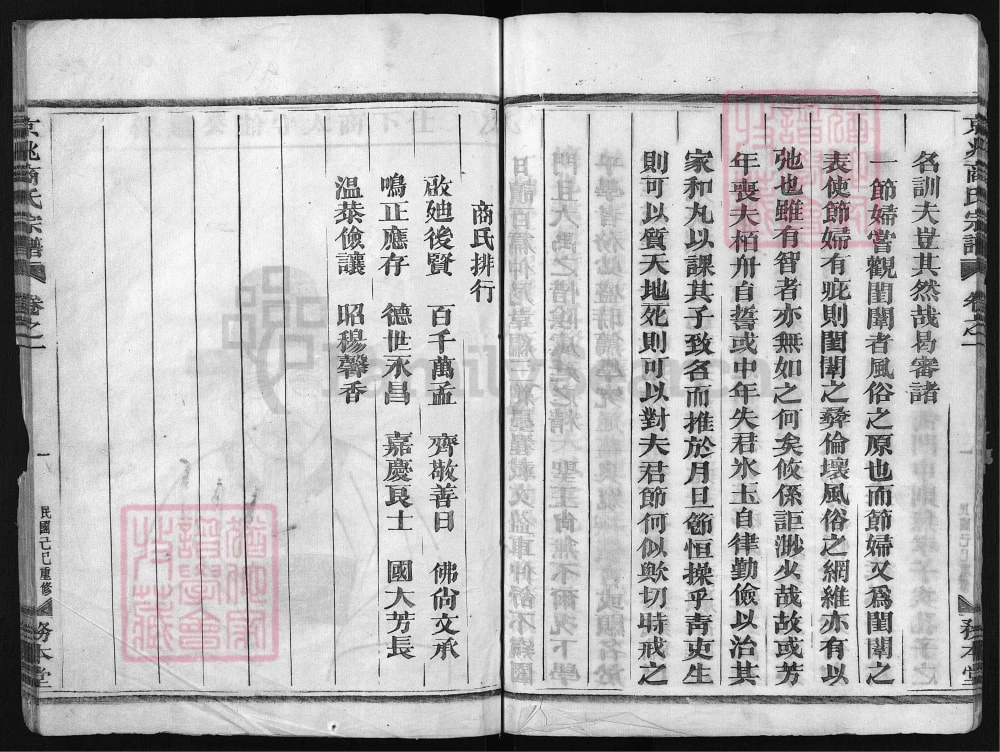 京兆商氏宗譜
卷之一
務本堂
名訓大豈其然哉曷審諸
一節婦當觀閨閫者風俗之原也而節婦又為閨閫之
表使節婦有疵則閨閫之彝倫壞風俗之網維亦有以
弛也雖有智者亦無如之何矣攸係詎渺少哉故或芳
年喪夫栢舟自誓或中年失君氷玉自律勤儉以治其
家和丸以課其子致名而推於月旦節恒操乎青史生
則可以質天地死則可以對夫君節何似歟切時戒之
商氏排行
啟廸後賢 百千萬孟 齊敬善日 佛尙文承
鳴正應存 德世永昌 嘉慶良士 國大芳長
溫恭儉讓 昭穆馨香
京兆商氏宗譜
卷之一
一
民國己巳重修
務本堂